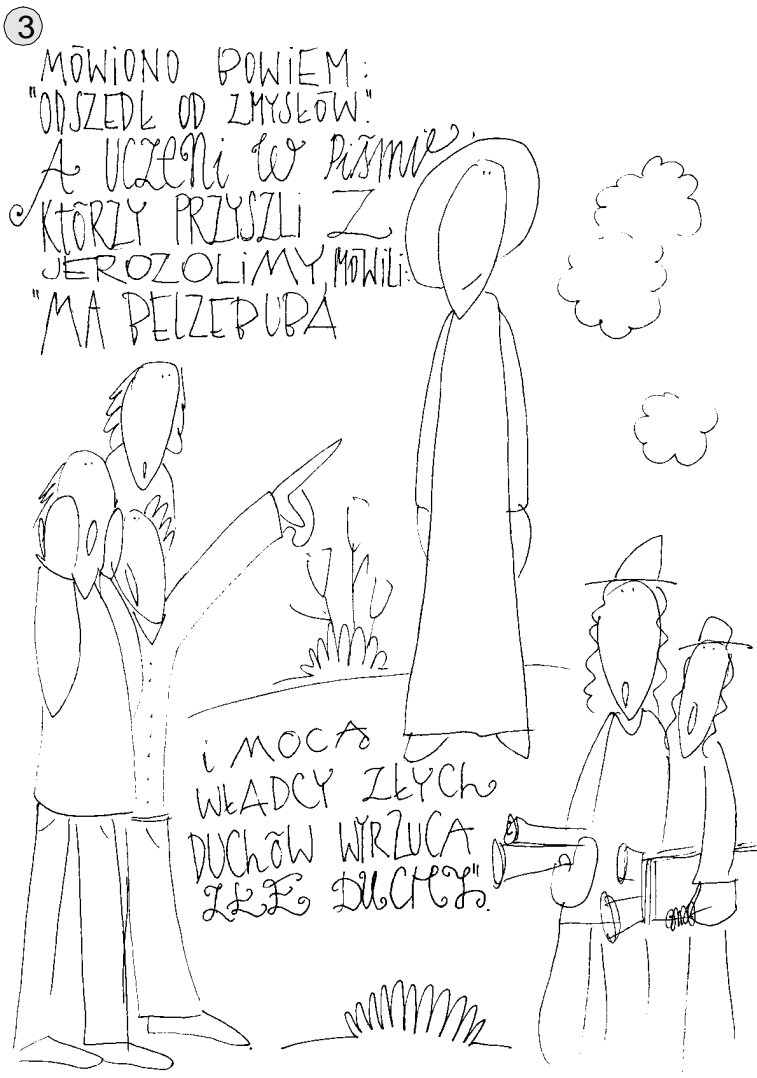 3
MÓWIONO BOWIEM:
"ODSZEDŁ OD ZMYSŁÓW."
A UCZENI W PIŚMIE,
KTÓRZY PRZYSZLI Z
JEROZOLIMY, MÓWILI:
"MA BELZEBUBA
i MOCĄ
WŁADCY ZŁYCH
DUCHÓW WYRZUCA
ZŁE DUCHY".